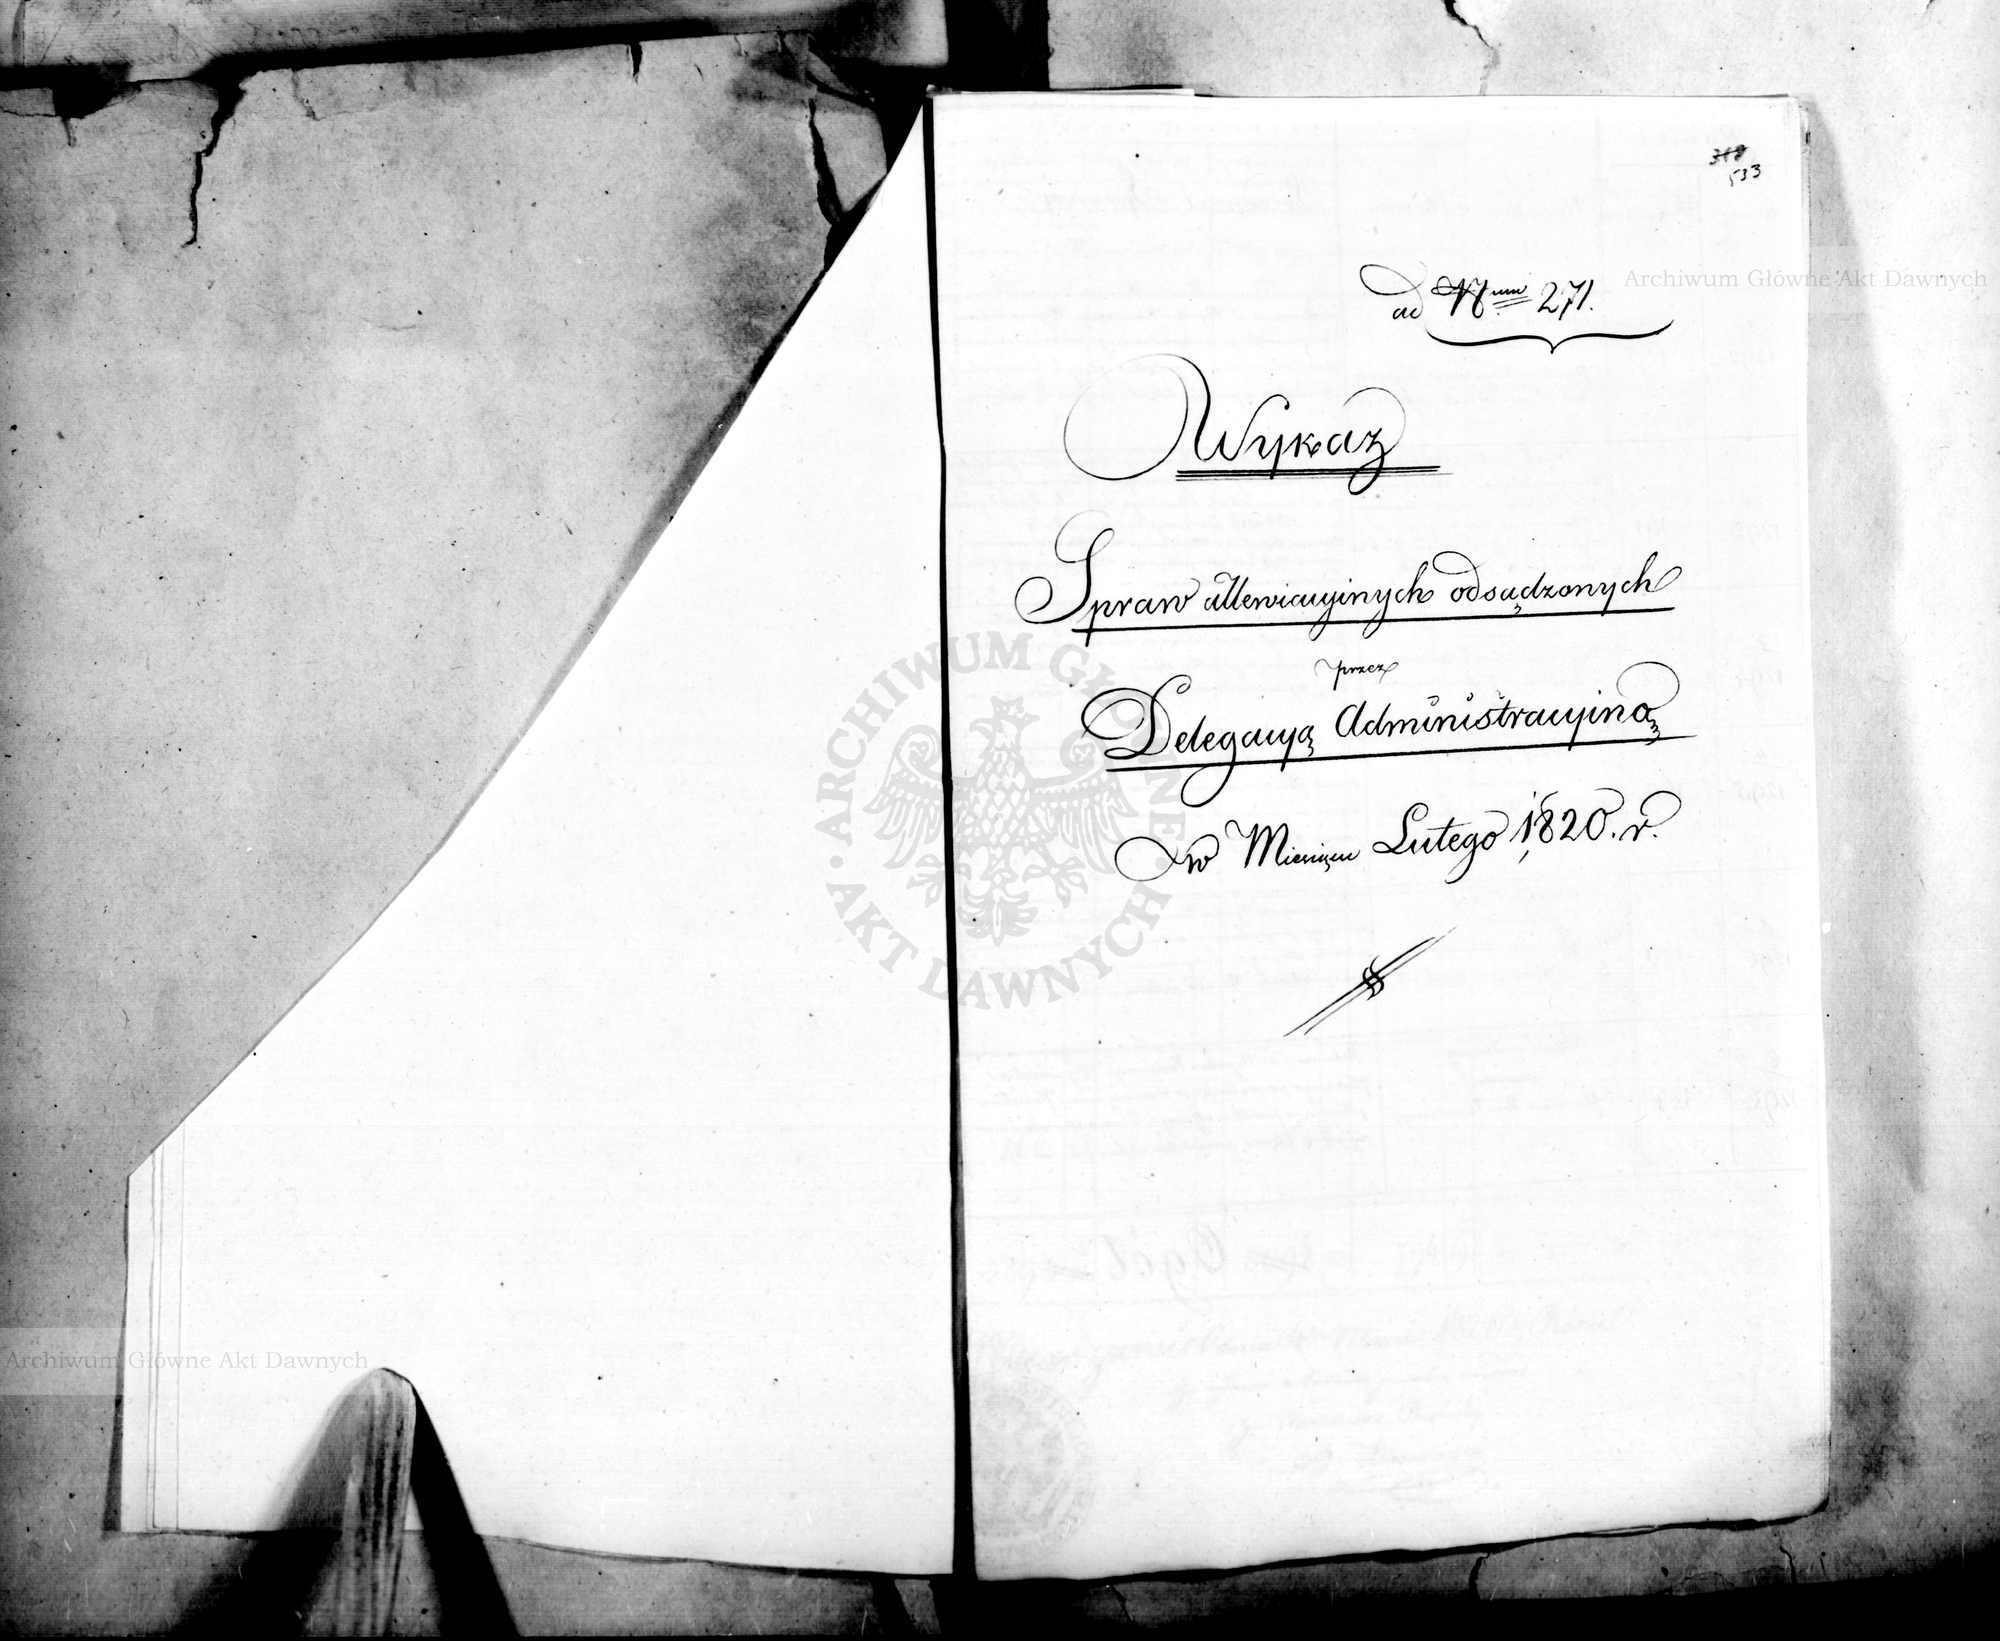 318
533
Archiwum Główne Akt Dawnych
ad Nrum 271.
Wykaz
Spraw allewiacyinych odsądzonych
przez
Delegacyą Administracyiną
w Miesiącu Lutego 1820. r.
ARCHIWUM GŁÓWNE
AKT DAWNYCH
Archiwum Główne Akt Dawnych